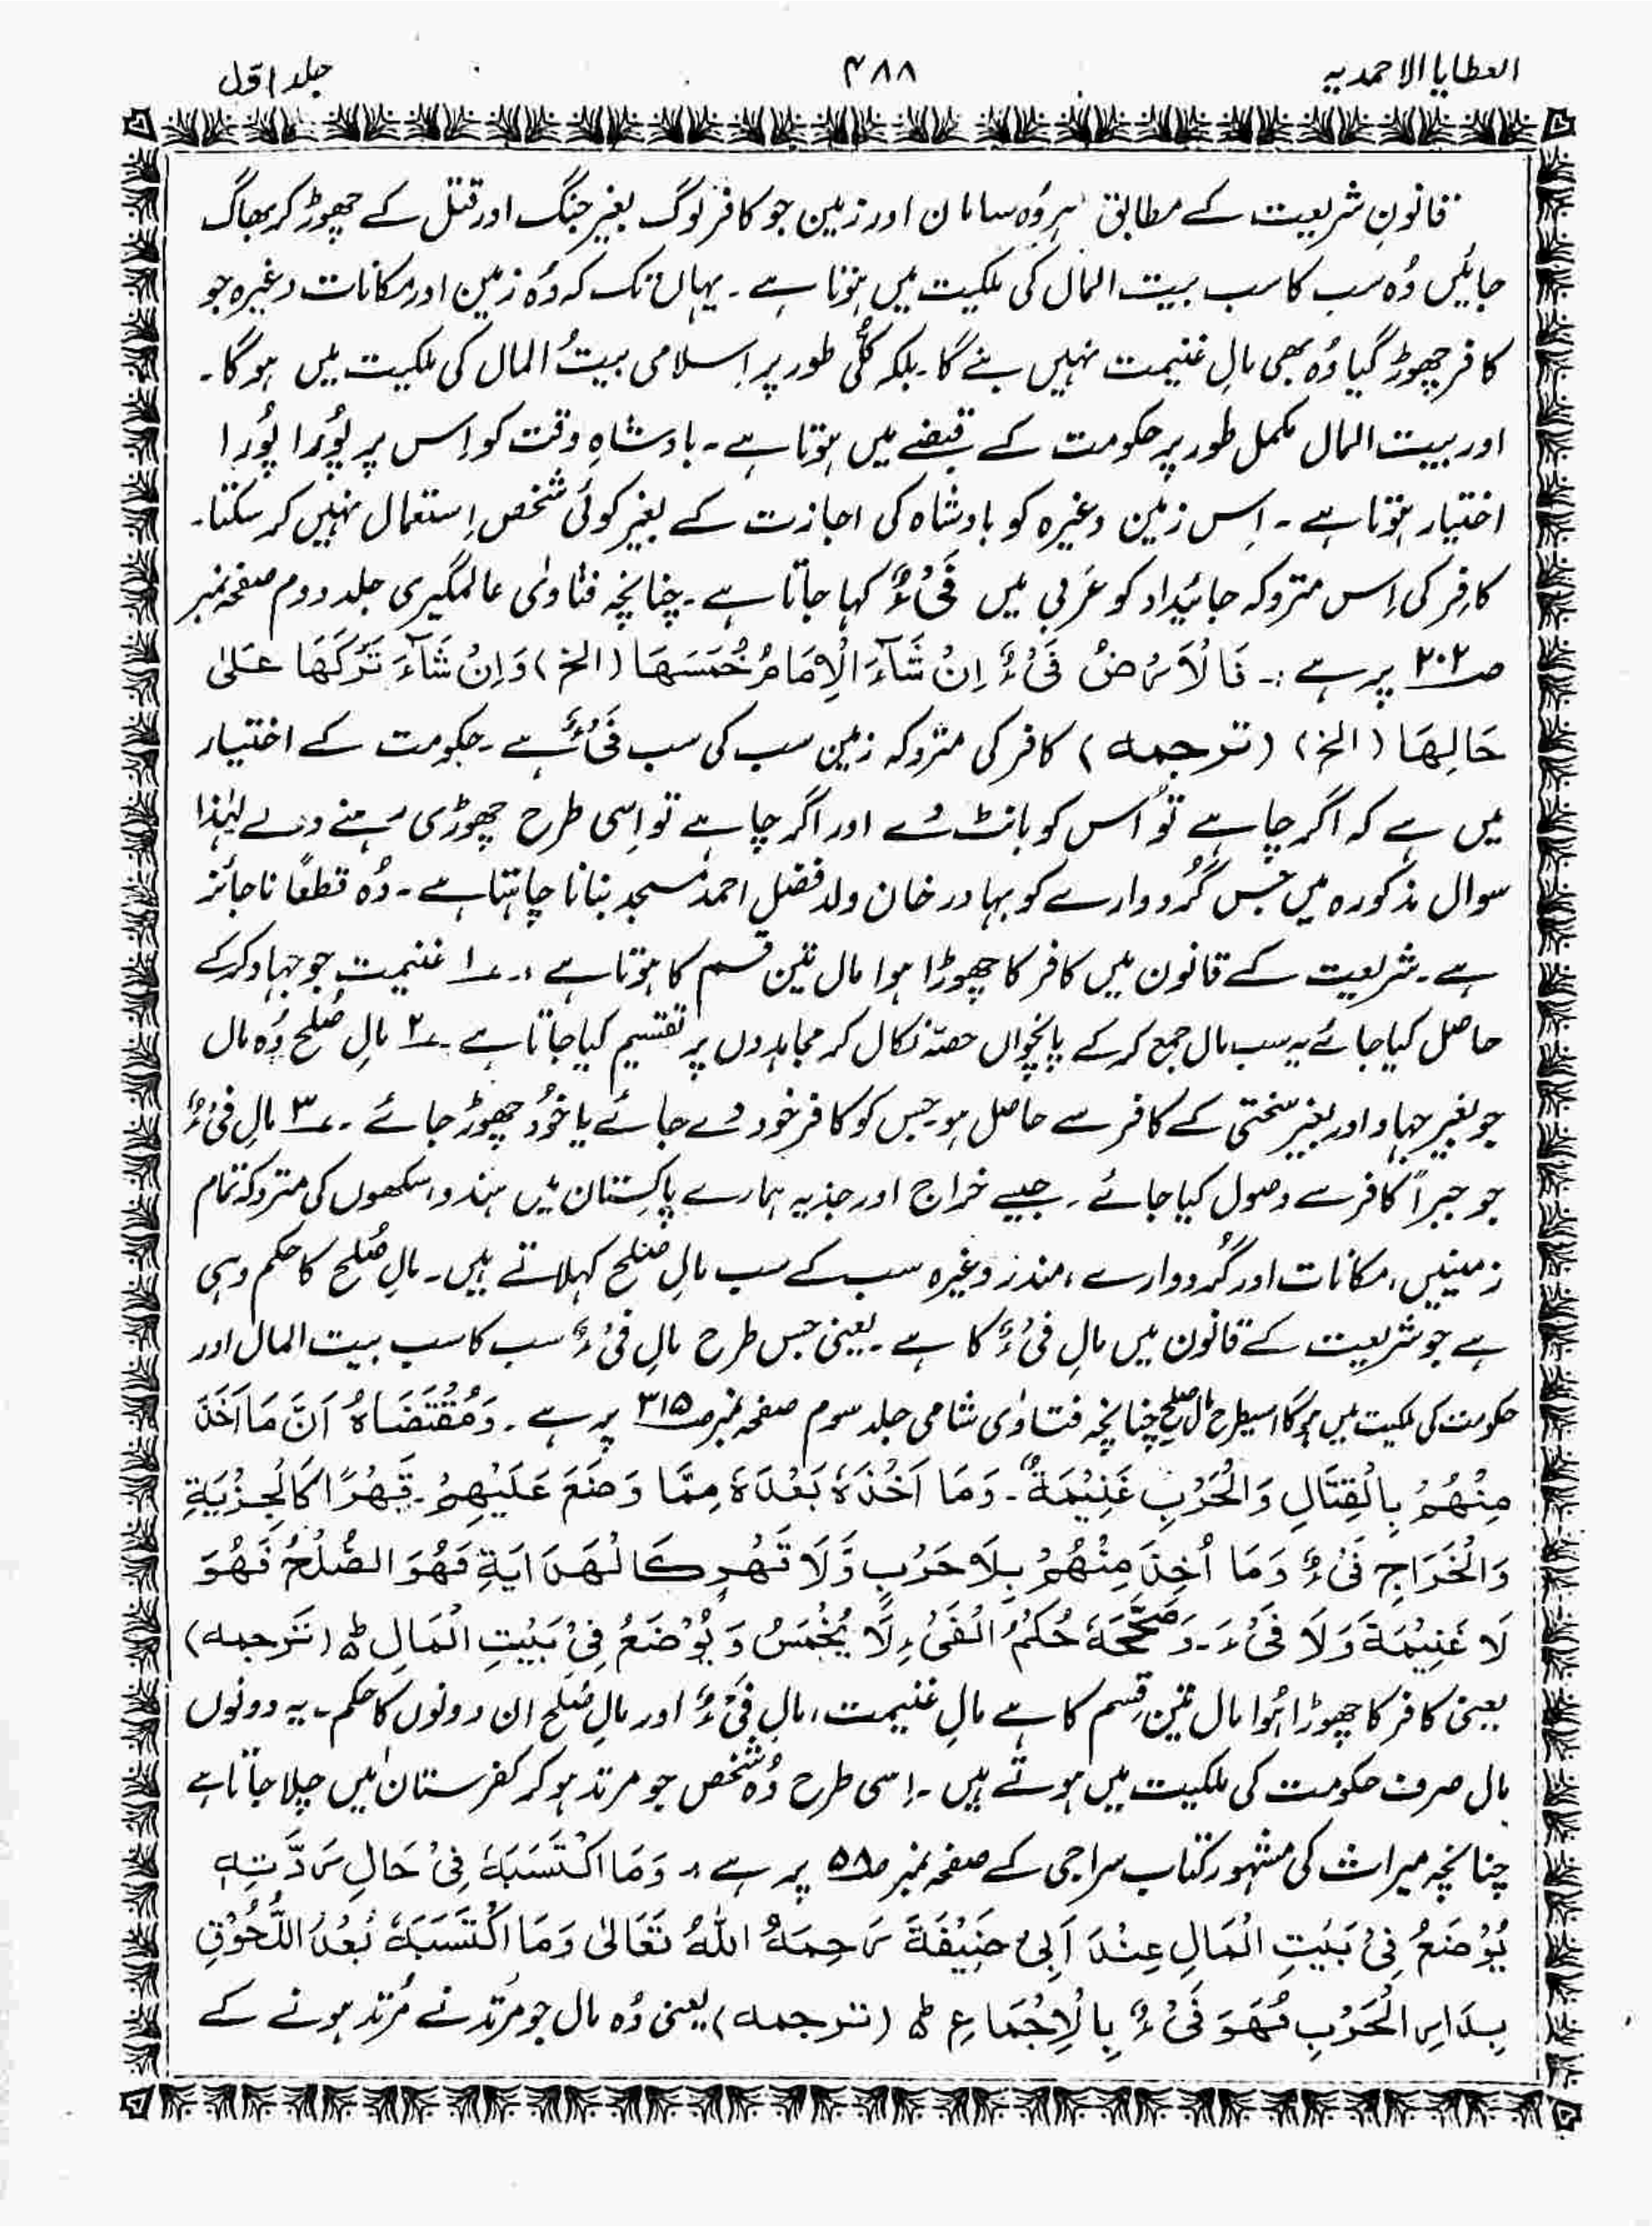 العطایا الاحمدیہ ۴۸۸ جلد اوّل
قانونِ شریعت کے مطابق ہر وُہ سامان اور زمین جو کافر لوگ بغیر جنگ اور قتل کے چھوڑ کر بھاگ
جائیں وُہ سب کا سب بیت المال کی ملکیت میں ہوتا ہے۔ یہاں تک کہ وُہ زمین اور مکانات وغیرہ جو
کافر چھوڑ گیا وُہ بھی مالِ غنیمت نہیں بنے گا۔ بلکہ کُلّی طور پر اِسلامی بیتُ المال کی ملکیت میں ہوگا۔
اور بیت المال مکمل طور پر حکومت کے قبضے میں ہوتا ہے۔ بادشاہِ وقت کو اِس پر پُورا پُورا
اختیار ہوتا ہے۔ اِس زمین وغیرہ کو بادشاہ کی اجازت کے بغیر کوئی شخص اِستعمال نہیں کر سکتا۔
کافِر کی اِس متروکہ جائیداد کو عَربی میں فَیْءٌ کہا جاتا ہے۔ چنانچہ فتاوٰی عالمگیری جلد دوم صفحہ نمبر
صـ۲۰۲ پر ہے :۔ فَالْاَرْضُ فَیْءٌ اِنْ شَآءَ الْاِمَامُ خُمَسَھَا (الخ) وَاِنْ شَآءَ تَرَکَھَا عَلیٰ
حَالِھَا (الخ) (ترجمہ) کافر کی متروکہ زمین سب کی سب فَیْءٌ ہے۔ حکومت کے اختیار
میں ہے کہ اگر چاہے تو اُس کو بانٹ دے اور اگر چاہے تو اِسی طرح چھوڑی رہنے دے لہٰذا
سوال مذکورہ میں جس گُردوارے کو بہادر خان ولد فضل احمد مسجد بنانا چاہتا ہے۔ وُہ قطعًا ناجائز
ہے۔ شریعت کے قانون میں کافر کا چھوڑا ہوا مال تین قسم کا ہوتا ہے :۔ ۱؎ غنیمت جو جہاد کرکے
حاصل کیا جائے یہ سب مال جمع کرکے پانچواں حصّہ نکال کر مجاہدوں پر تقسیم کیا جاتا ہے۔ ۲؎ مالِ صُلح وُہ مال
جو بغیر جہاد اور بغیر سختی کے کافر سے حاصل ہو۔ جس کو کافر خود دے جائے یا خُود چھوڑ جائے۔ ۳؎ مالِ فَیْءٌ
جو جبراً کافر سے وصول کیا جائے۔ جیسے خراج اور جذیہ ہمارے پاکستان میں ہندو، سکھوں کی متروکہ تمام
زمینیں، مکانات اور گُردوارے، مندر وغیرہ سب کے سب مالِ صلح کہلاتے ہیں۔ مالِ صُلح کا حکم وہی
ہے جو شریعت کے قانون میں مالِ فَیْءٌ کا ہے۔ یعنی جس طرح مالِ فَیْءٌ سب کا سب بیت المال اور
حکومت کی ملکیت میں ہوگا اسیطرح مال صلح چنانچہ فتاوٰی شامی جلد سوم صفحہ نمبر صـ۳۱۵ پر ہے۔ وَمُقْتَضَاہُ اَنَّ مَا اَخَذَ
مِنْھُمْ بِالْقِتَالِ وَالْحَرْبِ غَنِیْمَةٌ۔ وَمَا اَخْذَہٗ بَعْدَہٗ مِمَّا وَضَعَ عَلَیْھِمْ۔ قَھْرًا کَالْجِزْیَةِ
وَالْخَرَاجِ فَیْءٌ وَمَا اُخِذَ مِنْھُمْ بِلَا حَرْبٍ وَّلَا قَھْرٍ کَالْھَدَایَةِ فَھُوَ الصُّلْحُ فَھُوَ
لَا غَنِیْمَةَ وَلَا فَیْءَ۔ وَصَحَّحَہٗ حُکْمُ الْفَیْءِ لَا یُخْمَسُ وَیُوْضَعُ فِیْ بَیْتِ الْمَالِ ط (ترجمہ)
یعنی کافر کا چھوڑا ہُوا مال تین قِسم کا ہے مالِ غنیمت، مالِ فَیْءٌ اور مالِ صُلح ان دونوں کا حکم۔ یہ دونوں
مال صرف حکومت کی ملکیت میں ہوتے ہیں۔ اِسی طرح وُہ شخص جو مرتد ہو کر کفرستان میں چلا جاتا ہے
چنانچہ میراث کی مشہور کتاب سراجی کے صفحہ نمبر صـ۵۸ پر ہے :۔ وَمَا اکْتَسَبَہٗ فِیْ حَالِ رَدَّتِہٖ
یُوْضَعُ فِیْ بَیْتِ الْمَالِ عِنْدَ اَبِیْ حَنِیْفَةَ رَحِمَہُ اللّٰہُ تَعَالٰی وَمَا اکْتَسَبَہٗ بَعْدَ اللُّحُوْقِ
بِدَارِ الْحَرْبِ فَھُوَ فَیْءٌ بِالْاِجْمَاعِ ط (ترجمہ) یعنی وُہ مال جو مرتد نے مُرتد ہونے کے